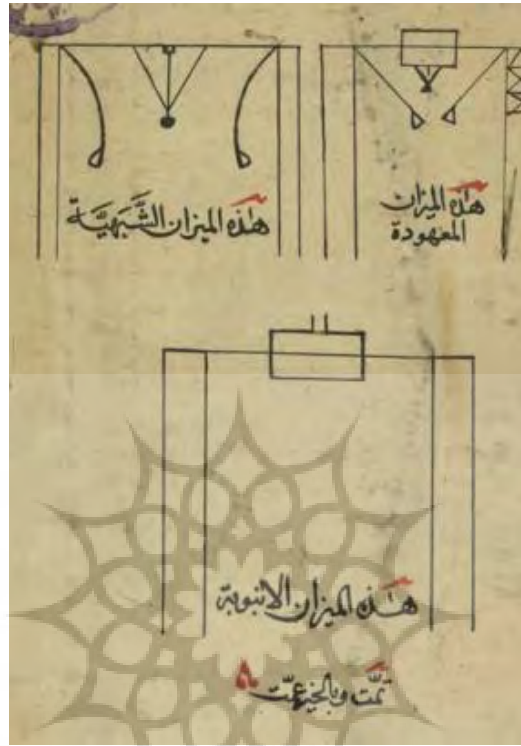 هذه الميزان
المعهودة
هذه الميزان الشَّبَهِيَّة
هذه الميزان الانبوبة
تمّت وبالخير عمّت